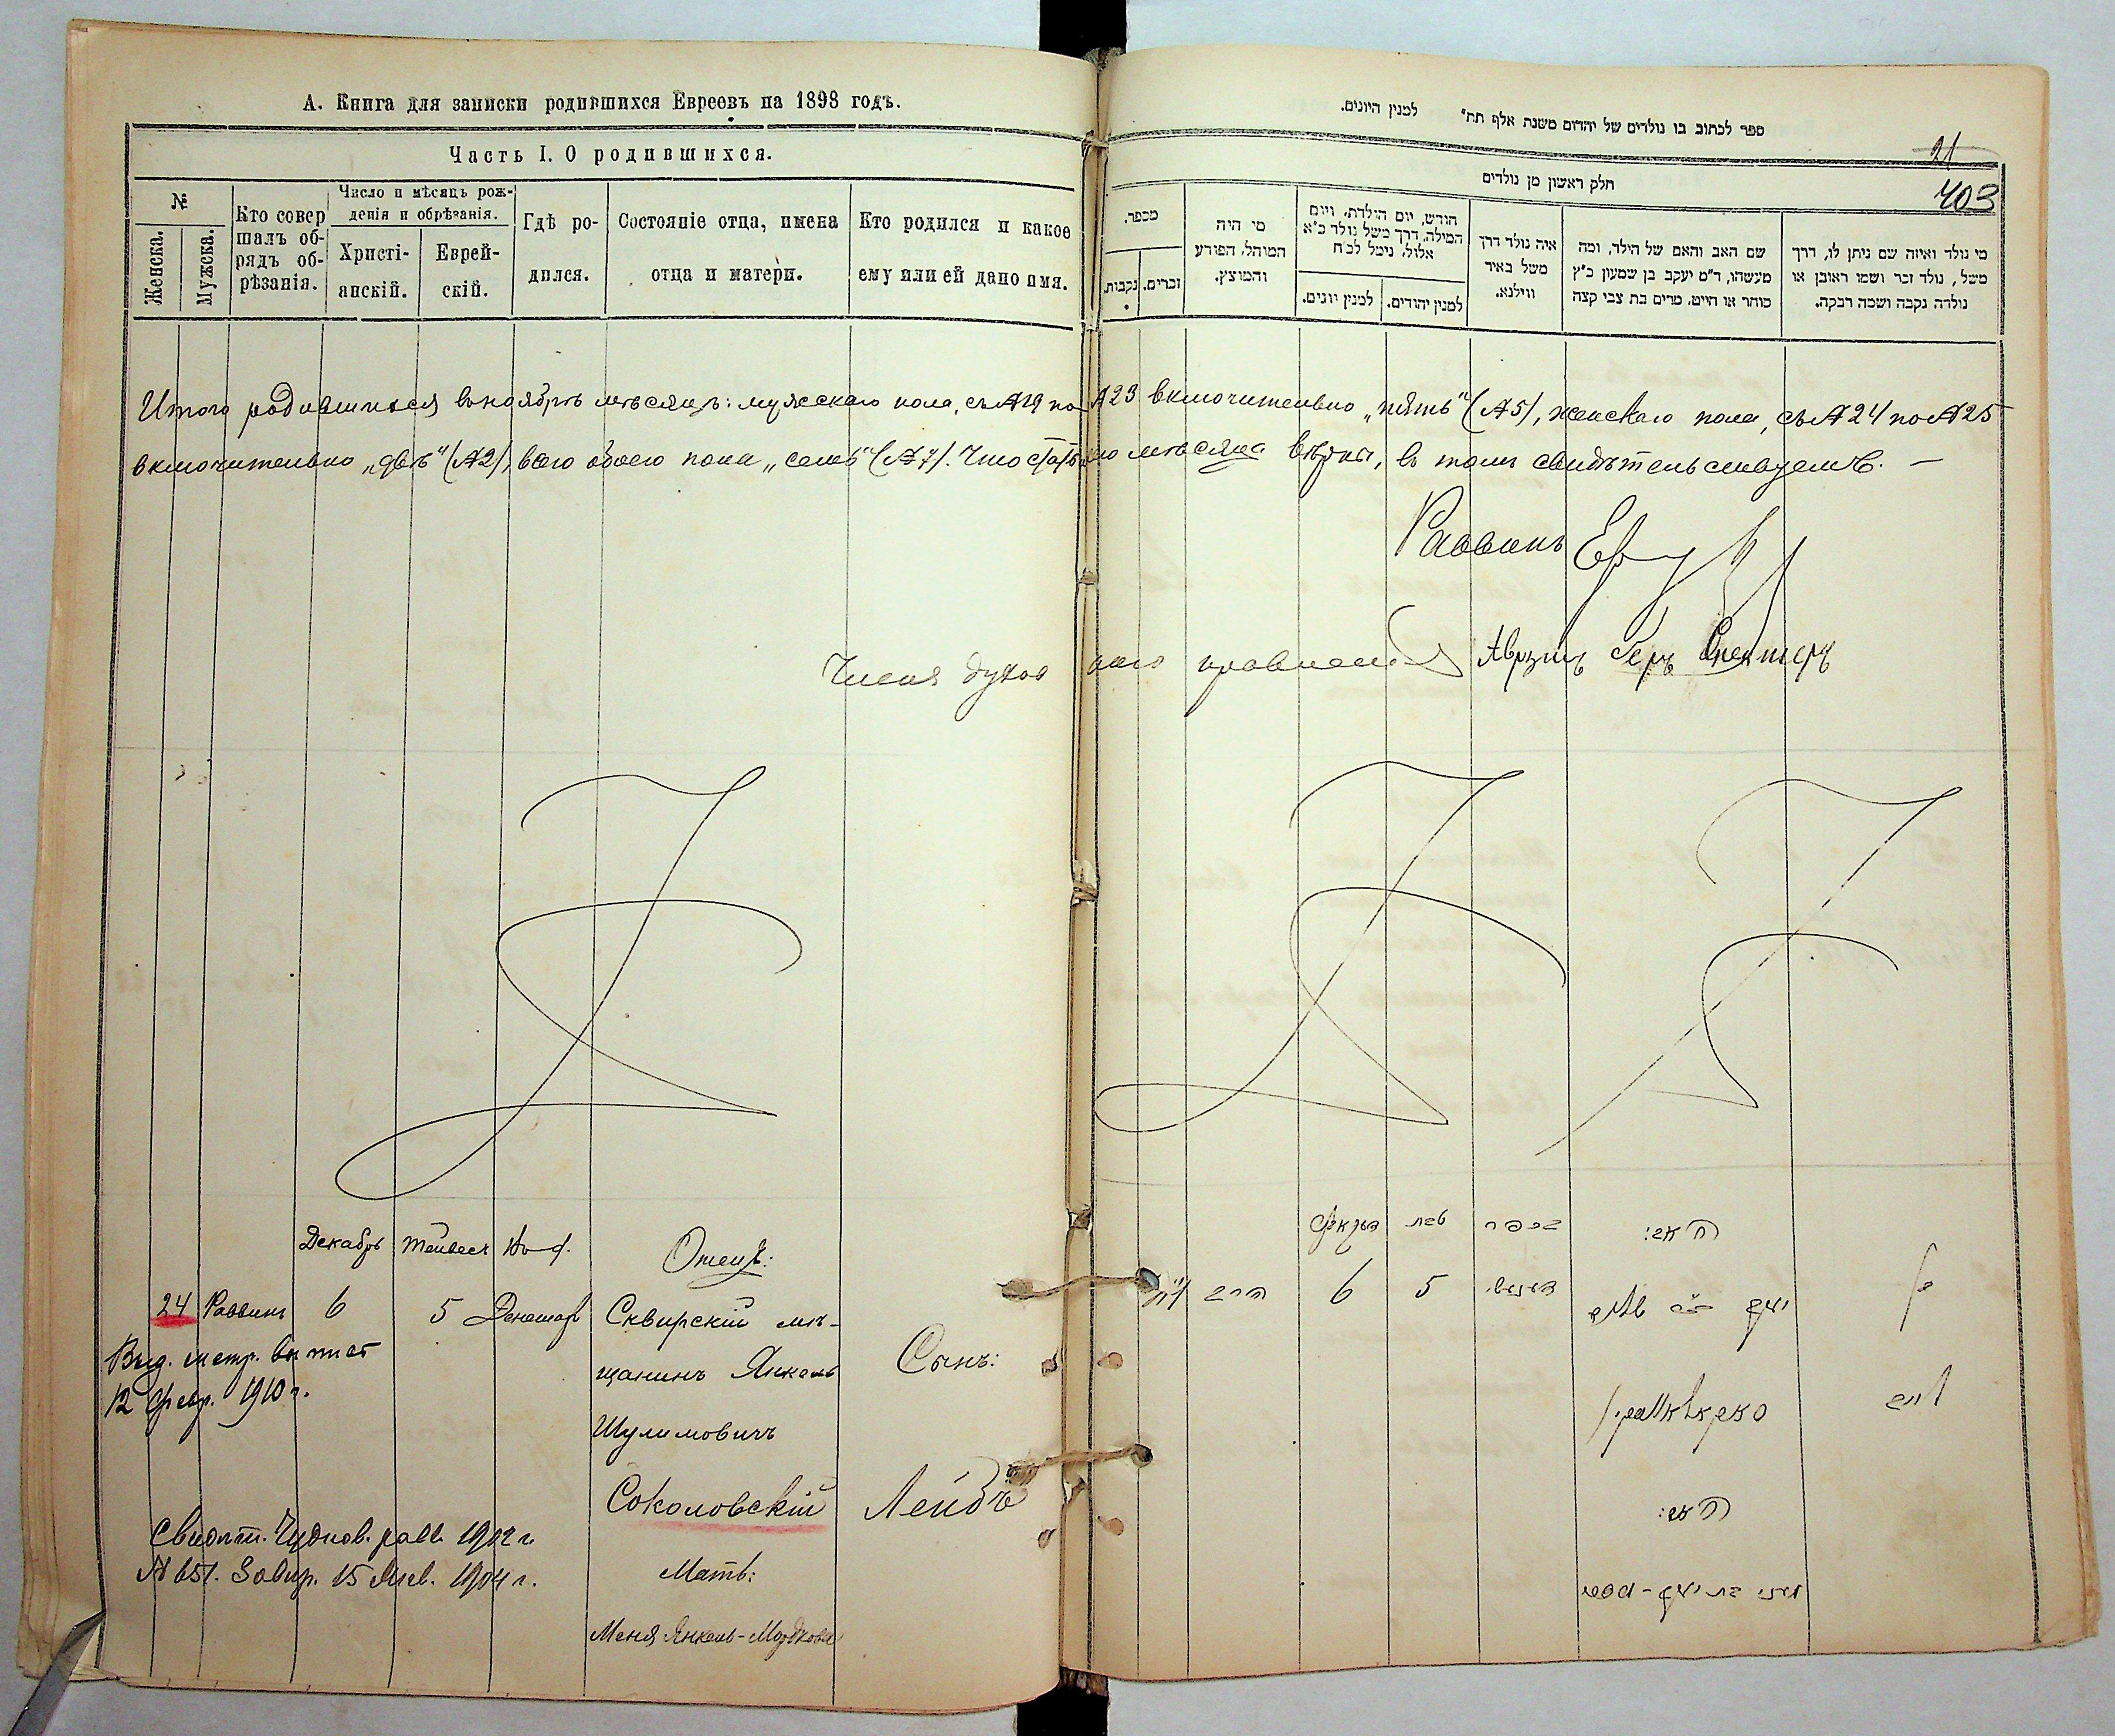 А. Книга для записки родившихся Евреевъ на 1898 годъ.
Часть I. О родившихся.
№
Женска.
Мужска.
Кто совер
шалъ об-
рядъ об-
рѣзанія.
Число и мѣсяцъ рож-
денія и обрѣзанія.
Христі-
анскій.
Еврей-
скій.
Гдѣ ро-
дился.
Состояніе отца, имена
отца и матери.
Кто родился и какое
ему или ей дано имя.
ספר לכתוב בו נולדים של יהודים משנת אלף תת״ למנין היונים.
21
403
חלק ראשון מן נולדים
מספר.
נקבות.
זכרים.
מי היה
המוהל, הפורע
והמוצץ.
חודש, יום הולדת, ויום
המילה, דרך משל נולד כ״א
אלול, נימל לכ״ח
למנין יונים.
למנין יהודים.
איה נולד דרך
משל באיר
ווילנא.
שם האב והאם של הילד, ומה
מעשהו, ד״מ יעקב בן שמעון כ״ץ
סוחר או חייט, מרים בת צבי קצה
מי נולד ואיזה שם ניתן לו, דרך
משל, נולד זכר ושמו ראובן או
נולדה נקבה ושמה רבקה.
Итого родившихся въ ноябрѣ мѣсяцѣ: мужскаго пола, съ №19 по №23 включительно „пять“ (№5), женскаго пола, съ №24 по №25
включительно „двѣ“ (№2), всего обоего пола „семь“ (№7). Что статьи сего мѣсяца вѣрны, въ томъ свидѣтельствуемъ. —
Раввинъ
Членъ духовнаго правленія Аврумъ Геръ Спекторъ
Декабрь Тейвесъ
Отецъ:
24 Раввинъ 6 5 Сквирскій мѣ-
щанинъ Янкель
Шулимовичъ
Соколовскій
Мать:
Меня Янкель-Мордкова
Сынъ:
Лейбъ
Выд. метр. выпис
12 февр. 1910 г.
Свидѣт. Чуднов. равв. 1902 г.
№ 651. Завир. 15 Янв. 1904 г.
דעקאבר
טבת
6
5
האב:
יעקב
סאקאלאווסקי
האם:
בן
לייב